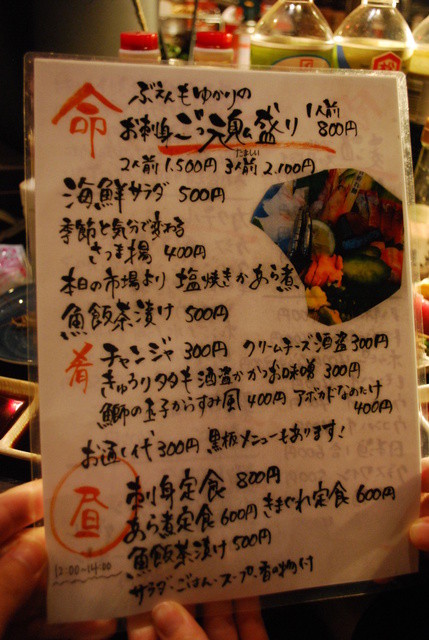 命
ぶえんもゆかりの
お刺身ごっ魂盛り 1人前 800円
たましい
2人前 1.500円 3人前 2.100円
海鮮サラダ 500円
季節と気分で変わる
さつま揚 400円
本日の市場より 塩焼きかあら煮
魚飯茶漬け 500円
肴 チャンジャ 300円 クリームチーズ酒盗 300円
きゅうりタタキ 酒盗かかつお味噌 300円
鰤の玉子からすみ風 400円 アボカドなめたけ
400円
お通し代 300円 黒板メニューもあります!
昼 刺身定食 800円
あら煮定食 600円 きまぐれ定食 600円
魚飯茶漬け 500円
12:00-14:00
サラダ・ごはん・スープ・香の物付